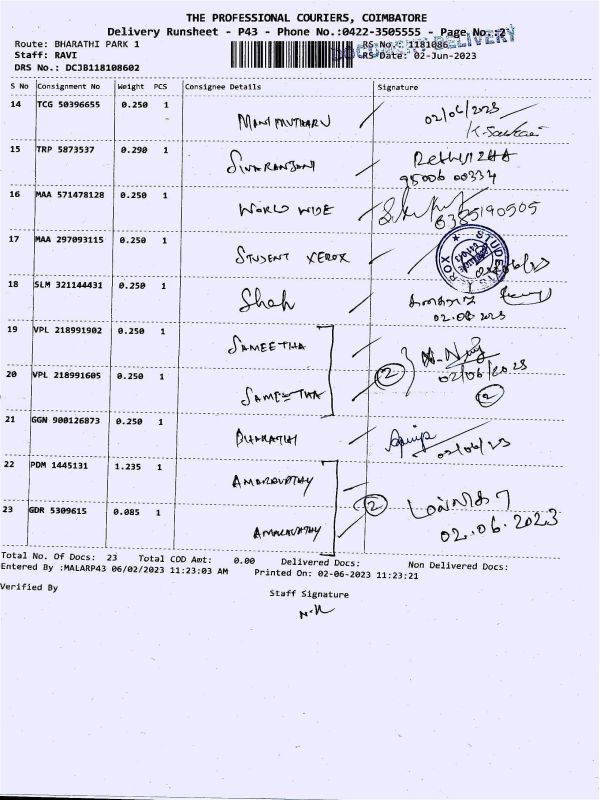 THE PROFESSIONAL COURIERS, COIMBATORE
Delivery Runsheet - P43 - Phone No.:0422-3505555 - Page No.:2
DOCUMENT DELIVERY
Route: BHARATHI PARK 1 RS No.: 1181086
Staff: RAVI RS Date: 02-Jun-2023
DRS No.: DCJB118108602
S No Consignment No Weight PCS Consignee Details Signature
14 TCG 50396655 0.250 1 02/06/2023
15 TRP 5873537 0.290 1 SIVARANJANI
95006 00334
16 MAA 571478128 0.250 1 WORLD WIDE 6385190505
17 MAA 297093115 0.250 1 STUDENT XEROX
18 SLM 321144431 0.250 1 Shah
02.06.2023
19 VPL 218991902 0.250 1 SAMEETHA
2 02/06/2023
20 VPL 218991605 0.250 1 SAMEETHA 2
21 GGN 900126873 0.250 1 BHARATHI 02/06/23
22 PDM 1445131 1.235 1 AMARAVATHY
2
23 GDR 5309615 0.085 1 AMARAVATHY 02.06.2023
Total No. Of Docs: 23 Total COD Amt: 0.00 Delivered Docs: Non Delivered Docs:
Entered By :MALARP43 06/02/2023 11:23:03 AM Printed On: 02-06-2023 11:23:21
Verified By Staff Signature